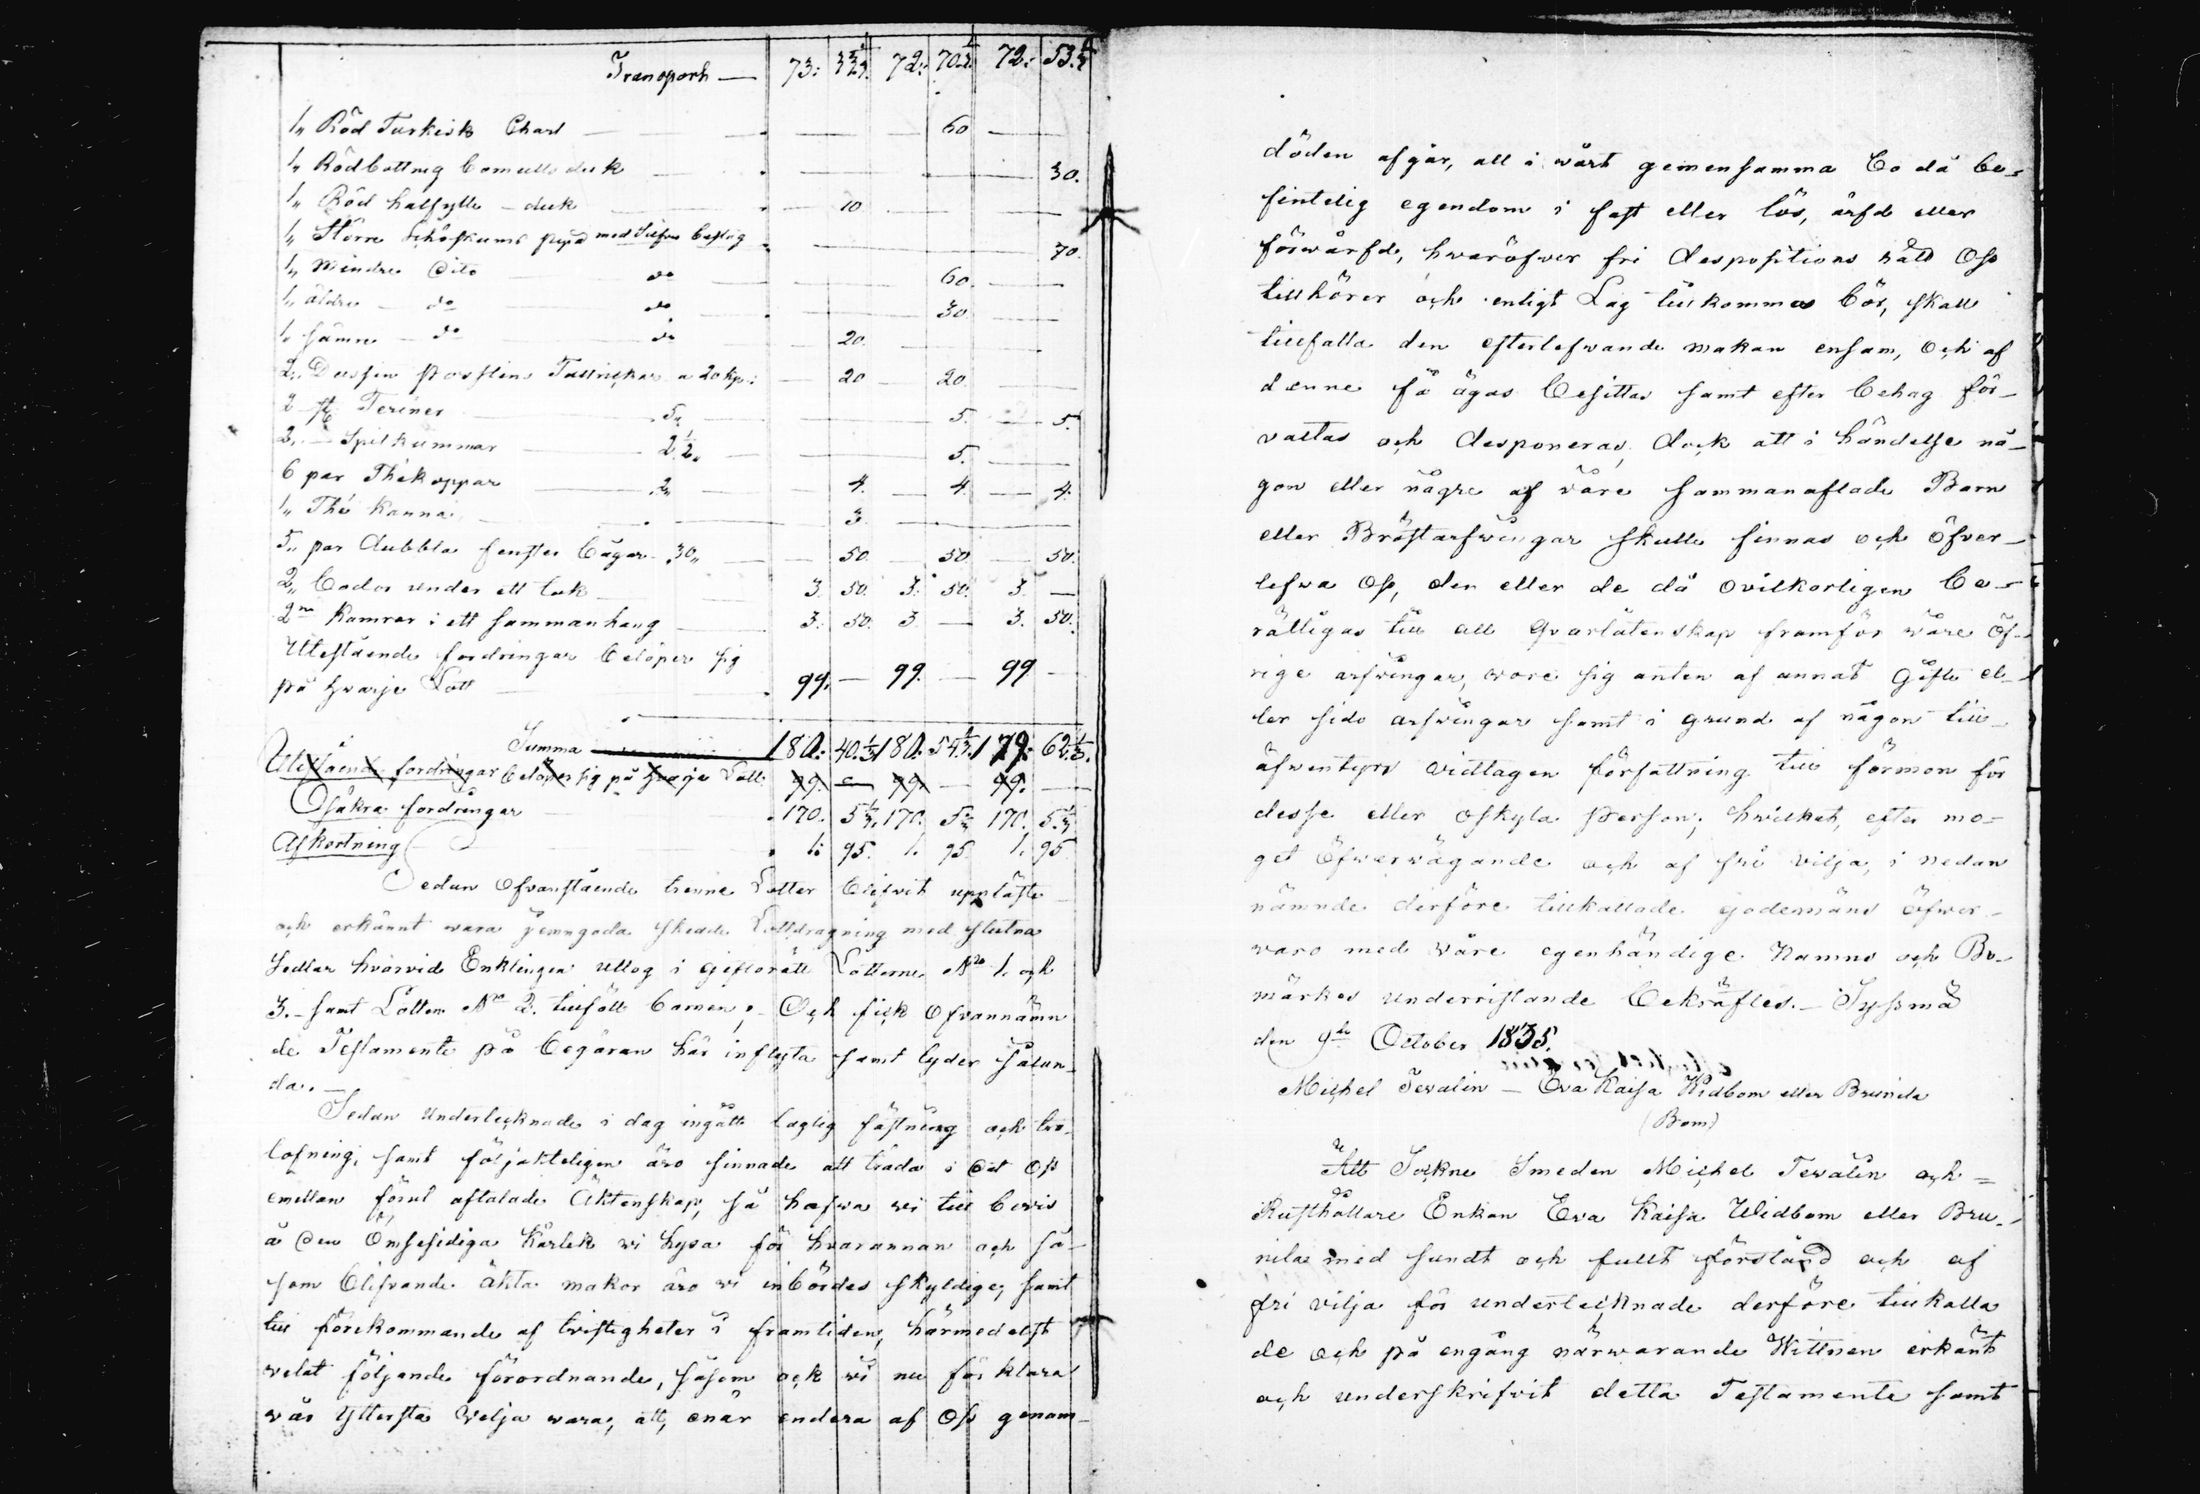 Transport — 73: 72: 72:
1„ Röd Turkisk Charl — 60
1„ Rödbottnig bomulls duk — 30.
1„ Röd halfylle – duk — 10
1„ Större Sjöskums pipa med Silfver beslag — 70.
1„ Mindre Dito do — 60.
1„ äldre — do do — 30.
1„ sämre — do do — 20.
2„ Dussin Porslins Tallrickar a 20 kp: — 20 — 20.
2 st: Teriner — 5„ — 5. — 5.
2„ — Spilkummar — 2 1/2„ — 5.
6 par Thékoppar — 2„ — 4. — 4. — 4.
1„ Thé Kanna — 3.
5„ par dubbla fenster bågar 30„ — 50. 50. 50.
2„ bodar under ett tak — 3. 50. 3. 50. 3. —
2ne Kamrar i ett sammanhang — 3. 50. 3. — 3. 50.
Utestående fordringar belöper sig
på hvarje Lott — 99. — 99. — 99 —
Summa — 180: 40 1/3 180. 54 1/3. 179: 62 1/3.
Utestående fordringar belöper sig på hvarje Lott 99. — 99. — 99. —
Osäkra fordringar — 170. 5 1/3. 170. 5 1/3 170. 5 1/3
Afkortning — 1: 95. 1. 95 1. 95
Sedan ofvanstående trenne Lotter blifvit uppläste
och erkännt wara jemngoda skedde Lottdragning med slutna
Sedlar hvarvid Enklingen uttog i giftorätt Lotterne No 1. och
3. – samt Lotten No 2. tillföll barnen; – Och fick ofvannämn
de Testamente på begäran här inflyta samt lyder sålun-
da. —
Sedan Undertecknade i dag ingått laglig fästning och tro-
lofning, samt följakteligen äro sinnade att träda i det oss
emellan förut aftalade Äktenskap, så hafwa wi till bewis
å den Ömsesidiga Kärlek wi hysa för hvarannan och så-
som blifvande äkta makor äro wi inbördes skyldige, samt
till förekommande af twistigheter i framtiden, härmedelst
velat följande förordnande, såsom ock wi nu förklara
wår yttersta Welja wara, att, enär endera af oss genom
döden afgår, all i wårt gemensamma bo då be-
fintelig egendom i fast eller lös, ärfd eller
förwärfd, hwaröfwer fri despositions rätt oss
tillhörer och enligt Lag tillkommas bör, skall
tillfalla den efterlefwande makan ensam, och af
denne få ägas besittas samt efter behag för-
valtas och desponeras, dock att i händelse nå-
gon eller någre af våre sammanaflade Barn
eller Bröstarfwingar skulle finnas och öfver-
lefwa oss, den eller de då ovilkorligen be-
rättigas till all qvarlåtenskap framför wåre öf-
rige arfwingar, wore sig anten af annat Gifte el-
ler sido arfwingar samt i grund af någon till
äfwentyrs vidtagen författning till förmon för
desse eller oskyla Person; hwilket, efter mo-
get öfwerwägande och af fri vilja, i nedan
nämnde derföre tillkallade godemäns öfwer-
waro med wåre egenhändige Namns och Bo-
märkes underristande bekräftes. – Syssmä
den 9de October 1835.
Michel Tevalin — Eva Kaisa Widbom eller Brunila
(Bom)
Att Sockne Smeden Michel Tevalin och
Rusthållare Enkan Eva Kaisa Widbom eller Bru-
nila med sundt och fullt förstånd och af
fri vilja för undertecknade derföre tillkalla
de och på engång närwarande Wittnen erkänt
och underskrifvit detta Testamente samt